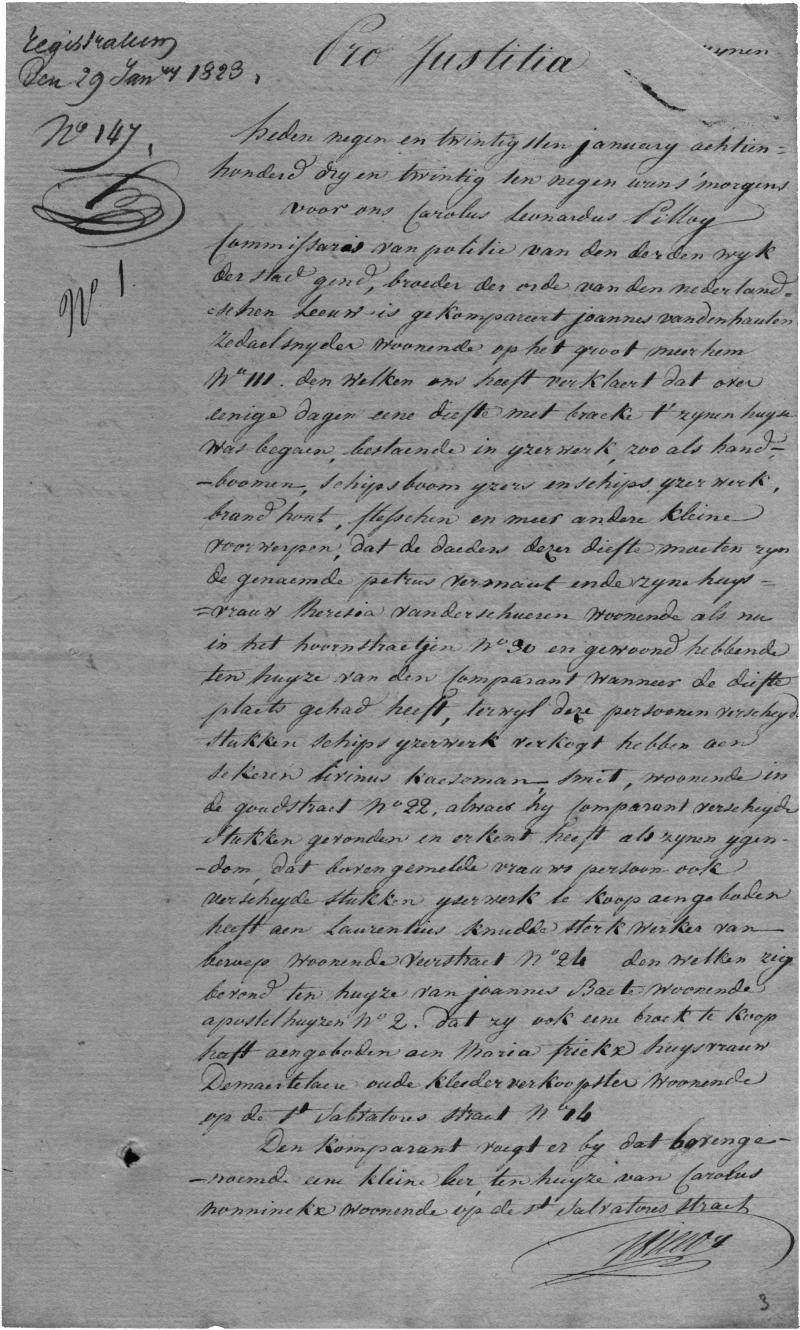 registratum
Den 29 Jan.ry 1823.
Pro Justitia
N.o 147.
N.o 1.
heden negen en twintigsten january achtien=
honderd dry en twintig ten negen uren s'morgens
voor ons Carolus Leonardus Pilloy
Commissaris van politie van den derden wyk
der stad gend, broeder der orde van den nederland=
=schen Leeuw is gekompareert joannes vandenhauten
zedaelsnyder woonende op het groot meerhem
N.o 111. den welken ons heeft verklaert dat over
eenige dagen eene diefte met braeke t' zynen huyse
was begaen, bestaende in yzerwerk, zoo als hand-
-boomen, schipsboom yzers en schips yzerwerk,
brand hout, flesschen en meer andere kleine
voorwerpen, dat de daeders dezer diefte moeten zyn
de genaemde petrus vermaut ende zyne huys=
=vrauw theresia vanderschueren woonende als nu
in het hoornstraetjen N.o 30 en gewoond hebbende
ten huyze van den Comparant wanneer de diefte
plaets gehad heeft, terwyl deze persoenen verscheyde
stukken schips yzerwerk verkogt hebben aen
sekeren Livinus kaeseman, smit, woonende in
de goudstraet N.o 22, alwaer hy Comparant verscheyde
stukken gevonden en erkent heeft als zynen ygen-
-dom, dat bovengemelde vrauws persoon ook
verscheyde stukken yserwerk te koop aengeboden
heeft aen Laurentius knudde sterk werker van
beroep woonende veerstraet N.o 24 den welken zig
bevond ten huyze van joannes Baete woonende
apostelhuyzen N.o 2. dat zy ook eene broek te koop
heeft aengeboden aen Maria frickx huysvrauw
Demaertelaere oude kleederverkoopster woonende
op de S.t Salvators straet N.o 14
Den komparant voegt er by dat bovenge-
-noemde eene kleine leer, ten huyze van Carolus
nonninckx woonende op de S.t Salvators straet
Pilloy
3